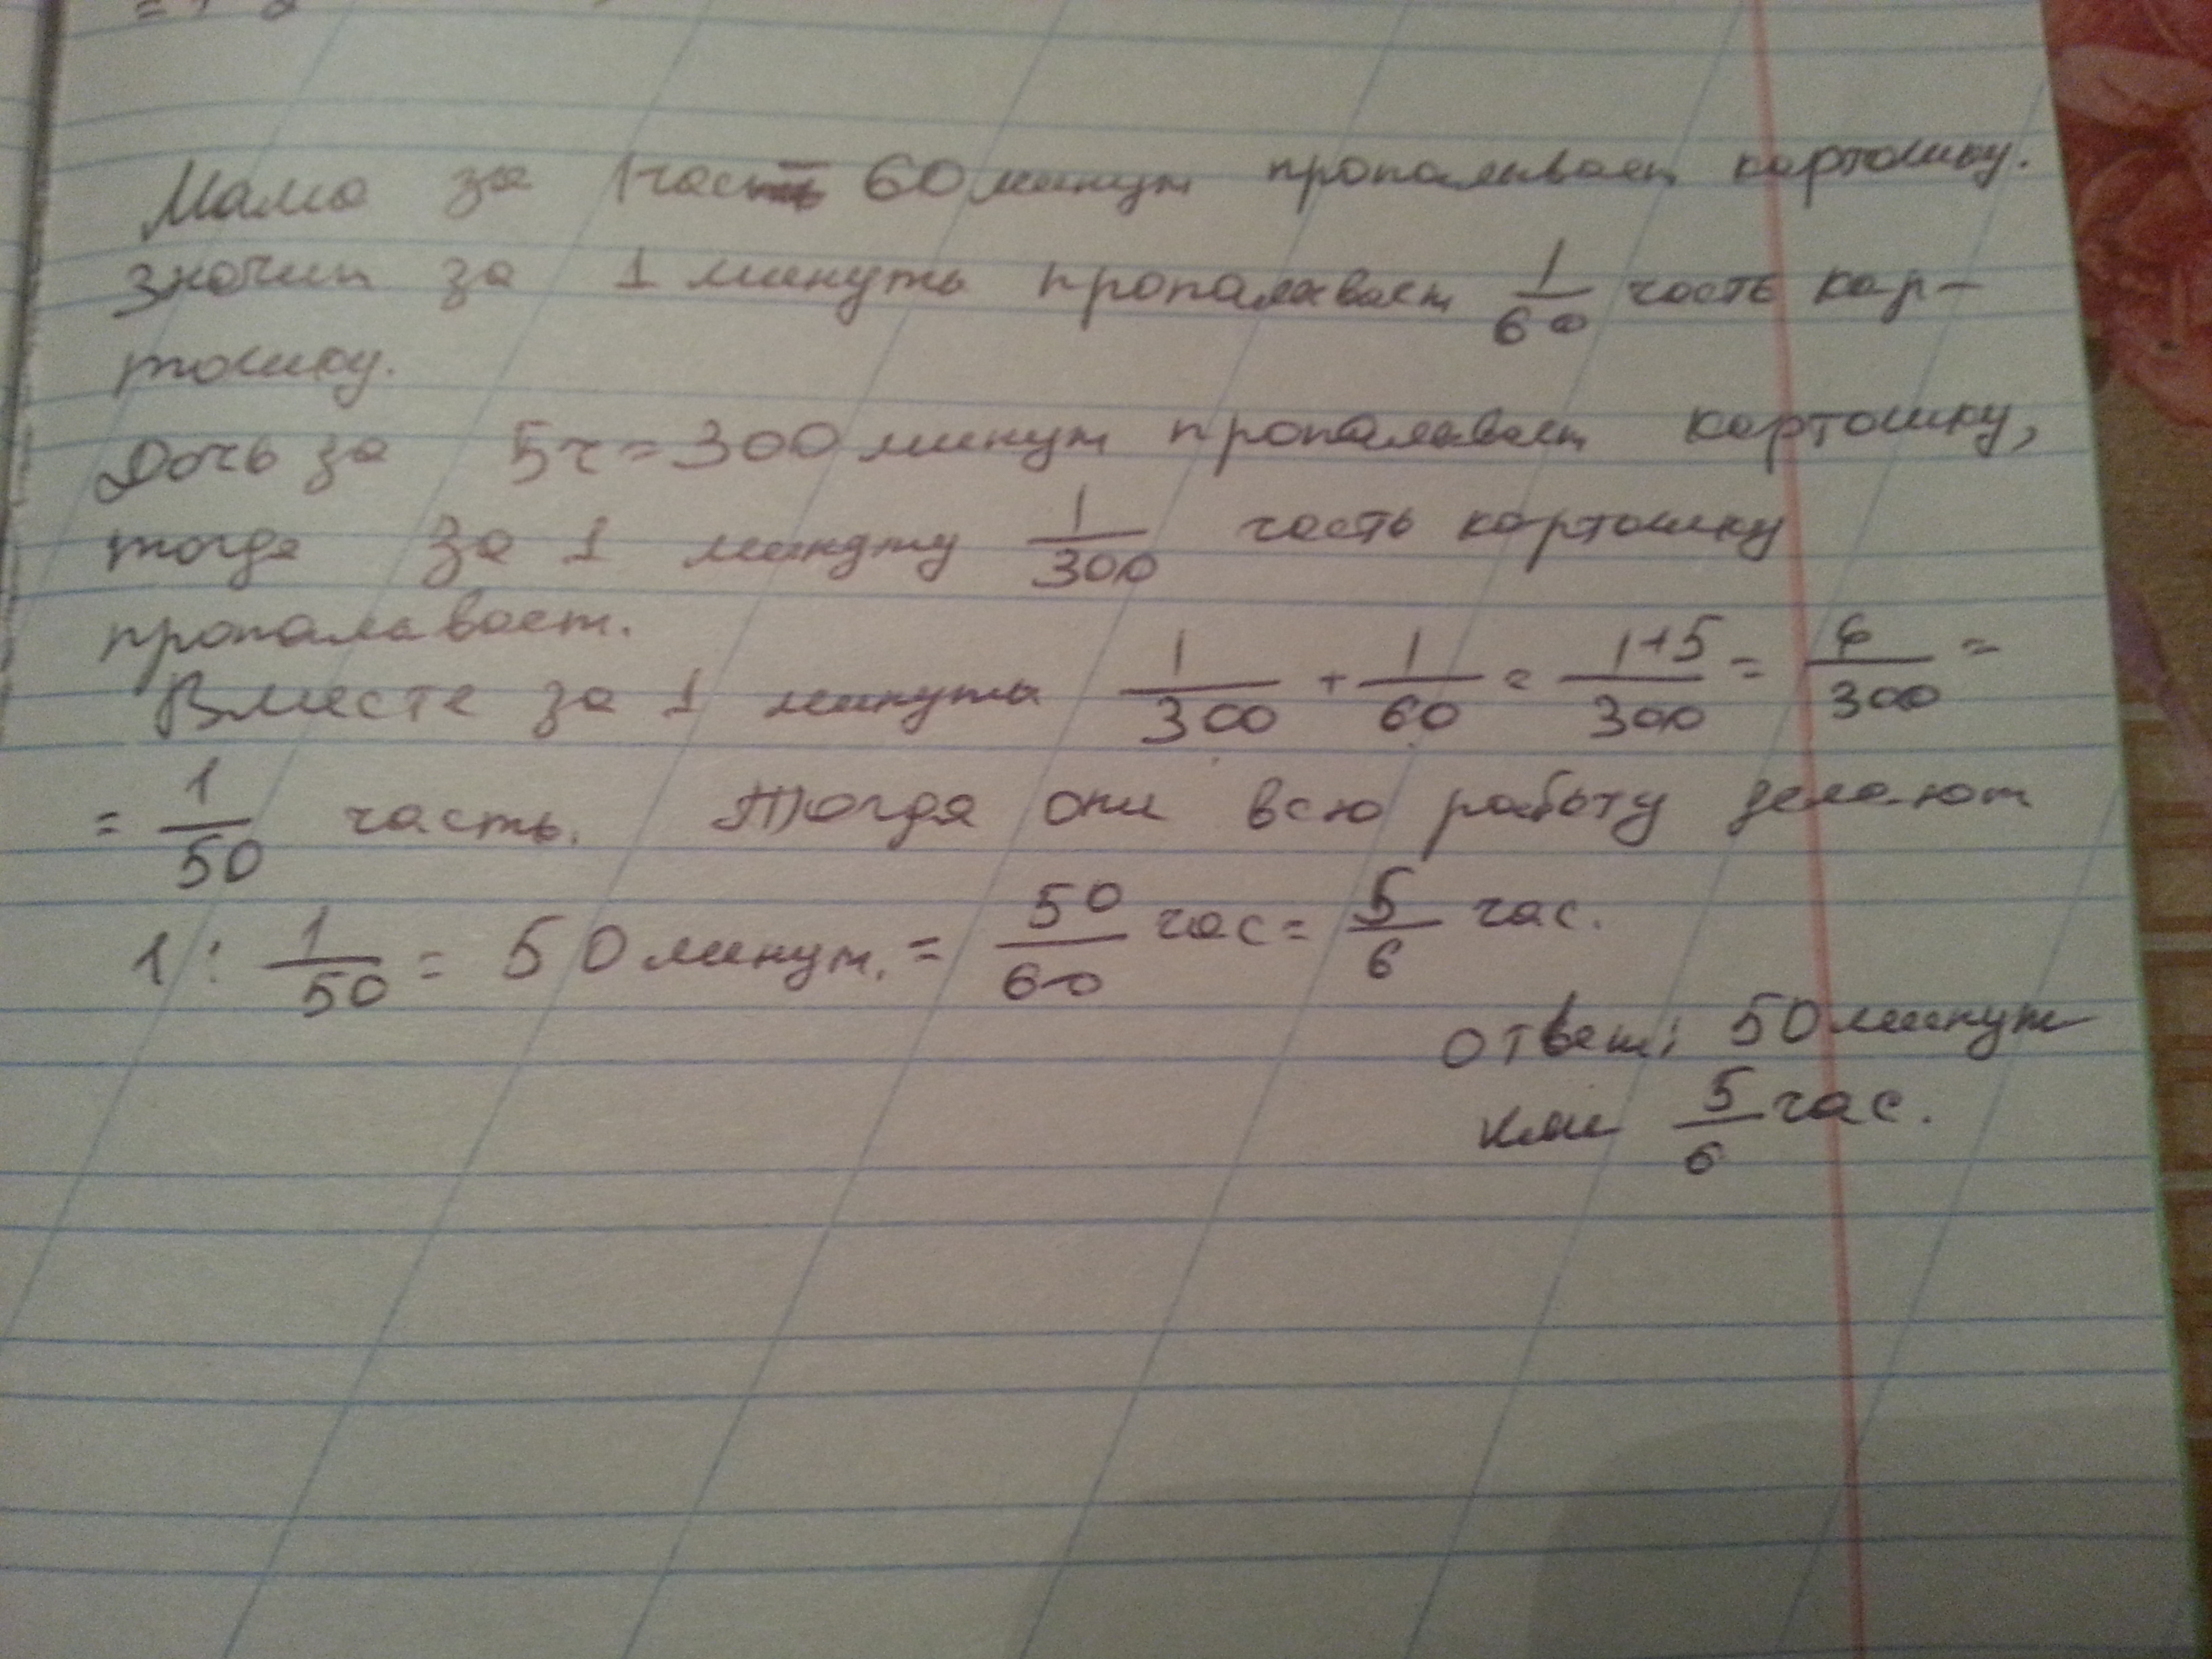 Мама за 1час = 60 минут пропаливает картошку.
значит за 1 минуты пропаливает 1/60 часть кар-
тошку.
Дочь за 5ч = 300 минут пропаливает картошку,
тогда за 1 минуту 1/300 часть картошку
пропаливает.
Вместе за 1 минуты 1/300 + 1/60 = 1+5/300 = 6/300 =
= 1/50 часть. Тогда они всю работу делают
1 : 1/50 = 50 минут. = 50/60 час = 5/6 час.
Ответ: 50 минут
или 5/6 час.